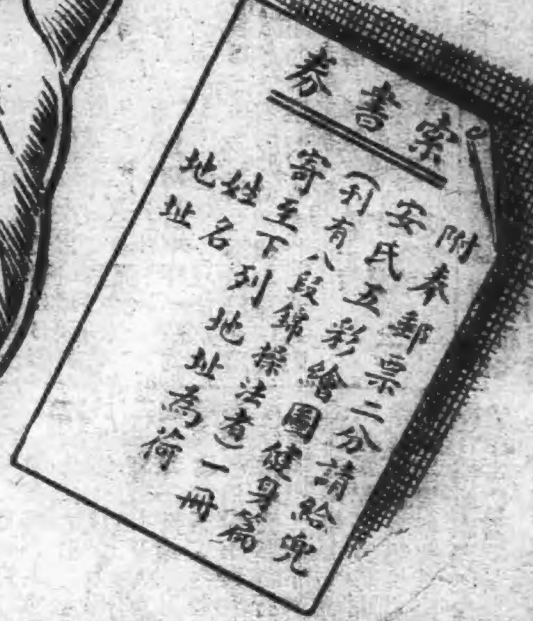 索書券
附奉郵票二分請給兜
安氏五彩繪圖健身篇
(利有八段錦操法者)一冊
寄至下列地址為荷
姓名
地址